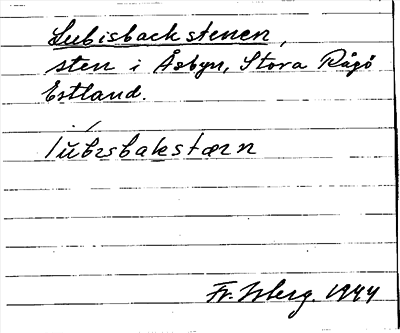 Lubisbackstenen,
sten i Åsbyn, Stora Rågö
Estland.
lùbısbakstæɴ
Fr. Isberg. 1944